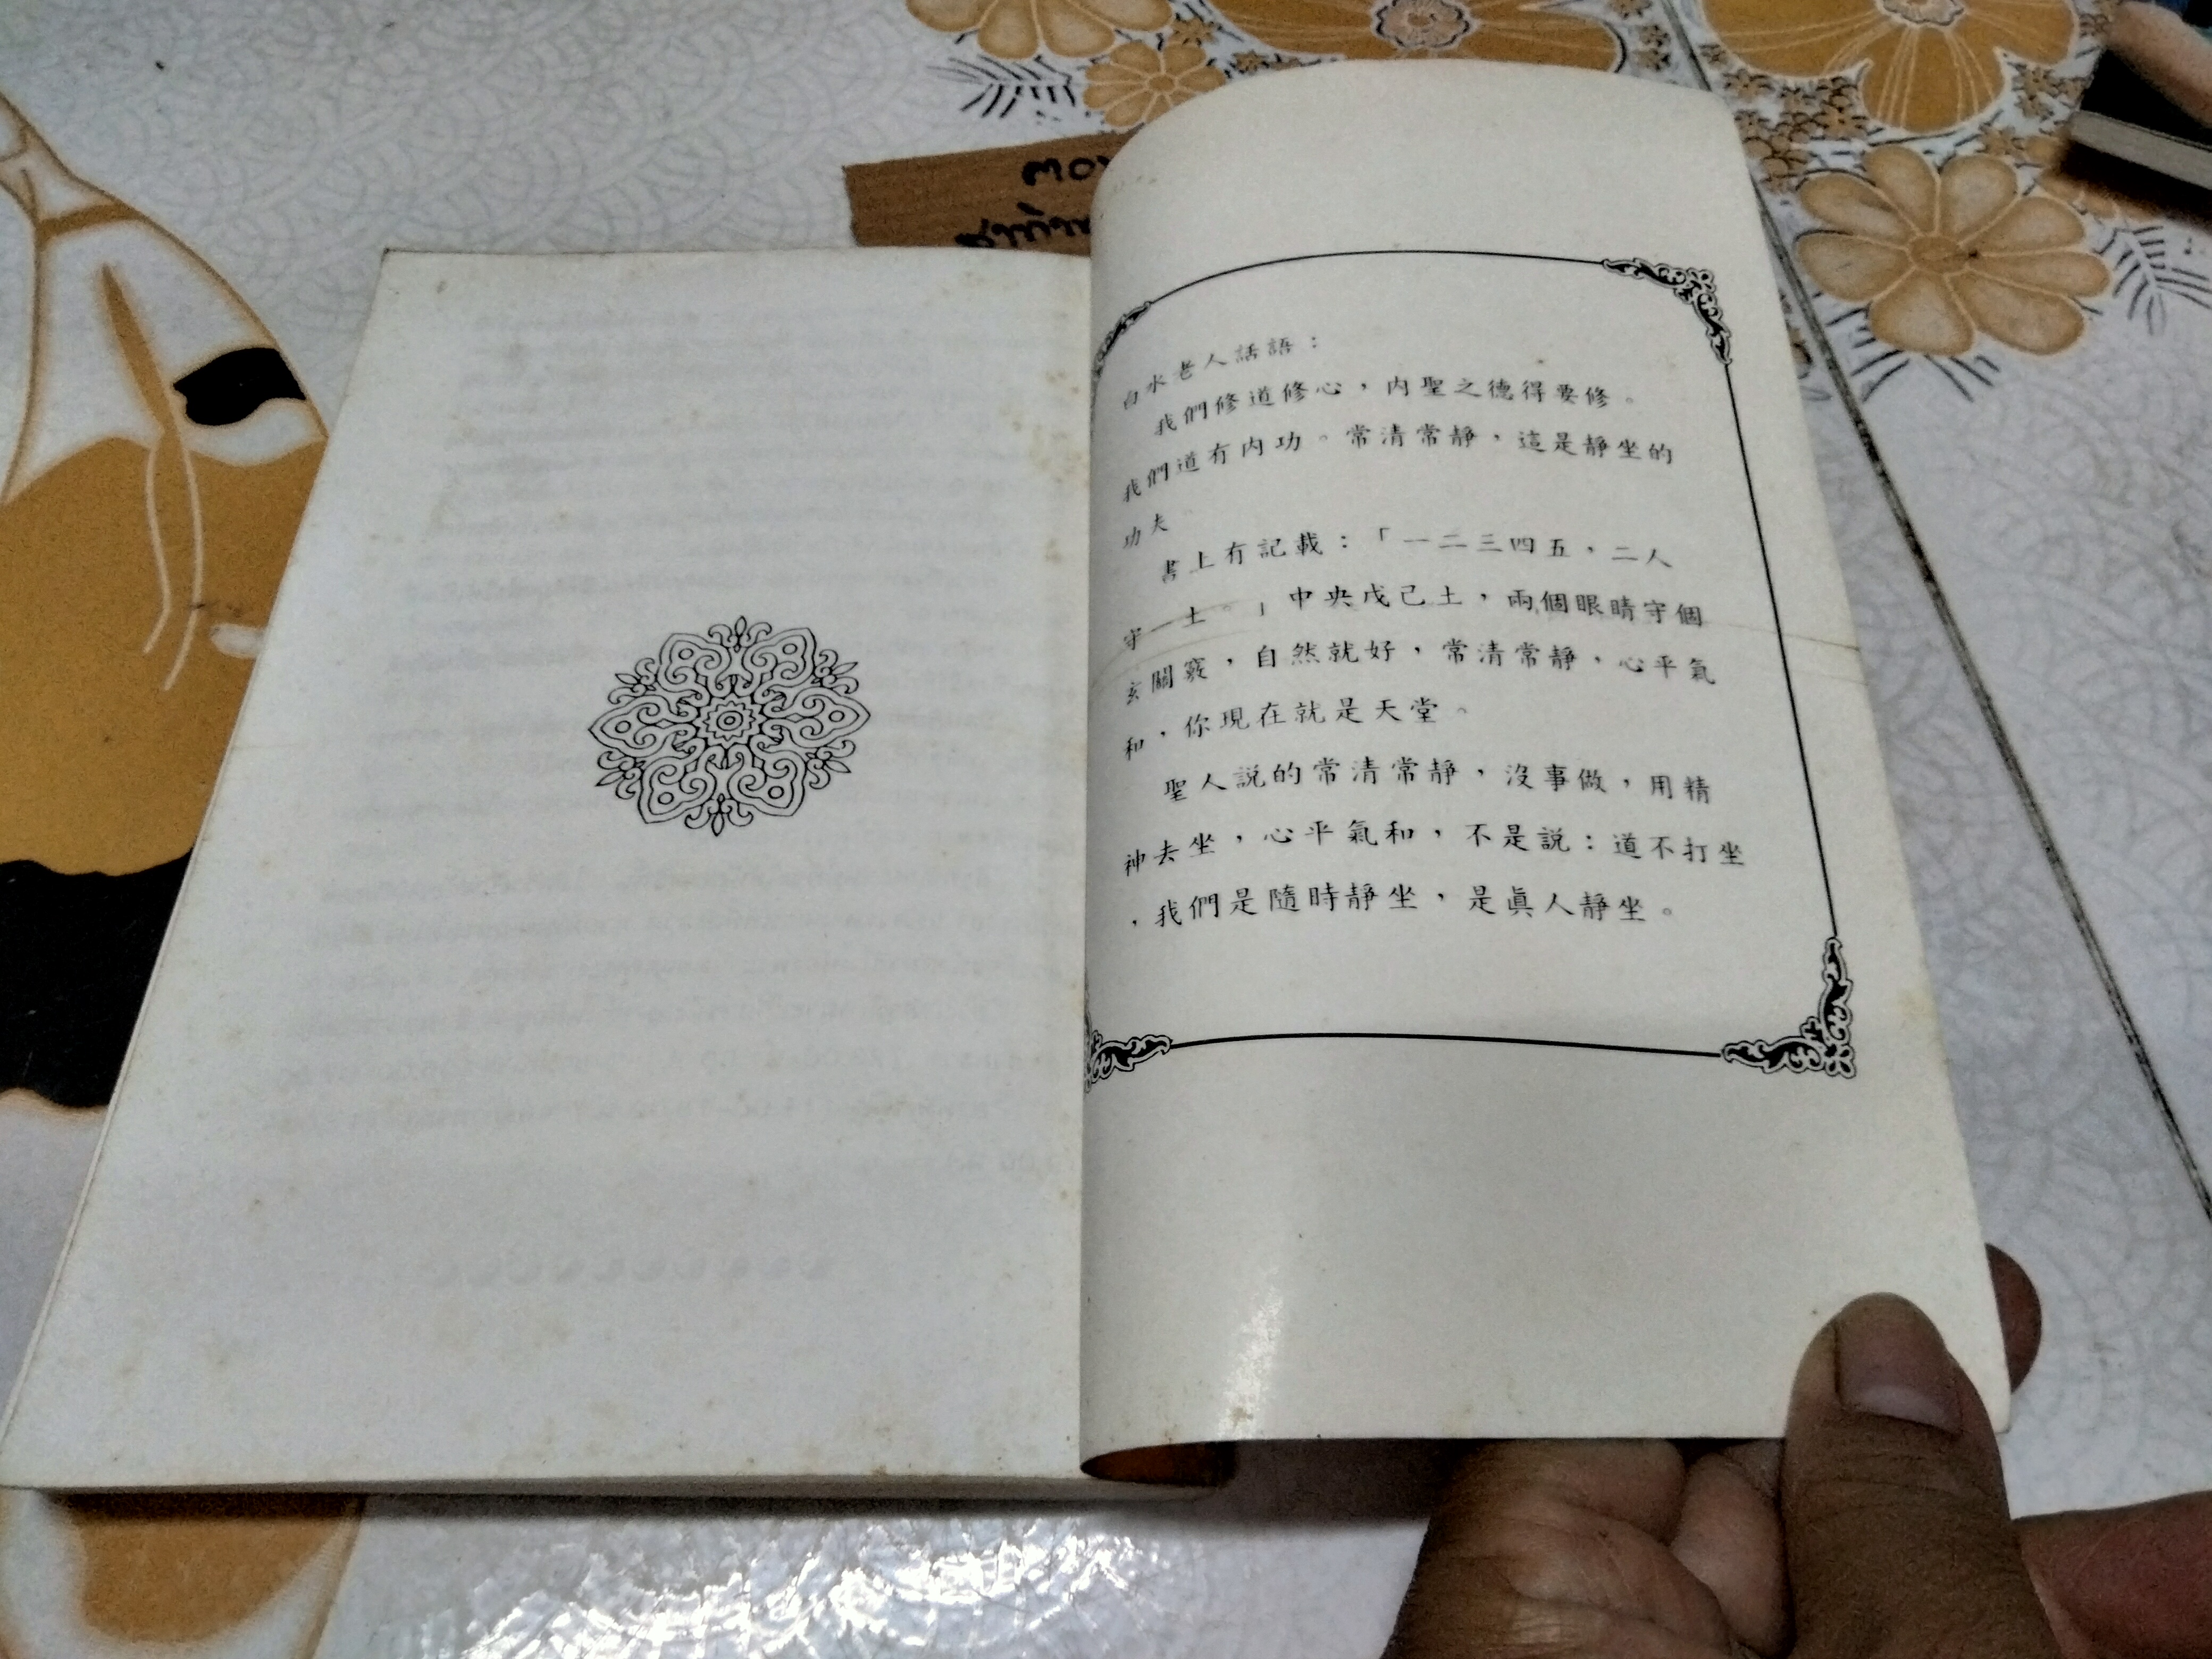 白水老人話語：
我們修道修心，內聖之德得要修。
我們道有內功。常清常靜，這是靜坐的
功夫。
書上有記載：「一二三四五，二人
守一土。」中央戊己土，兩個眼睛守個
玄關竅，自然就好，常清常靜，心平氣
和，你現在就是天堂。
聖人說的常清常靜，沒事做，用精
神去坐，心平氣和，不是説：道不打坐
，我們是隨時靜坐，是眞人靜坐。